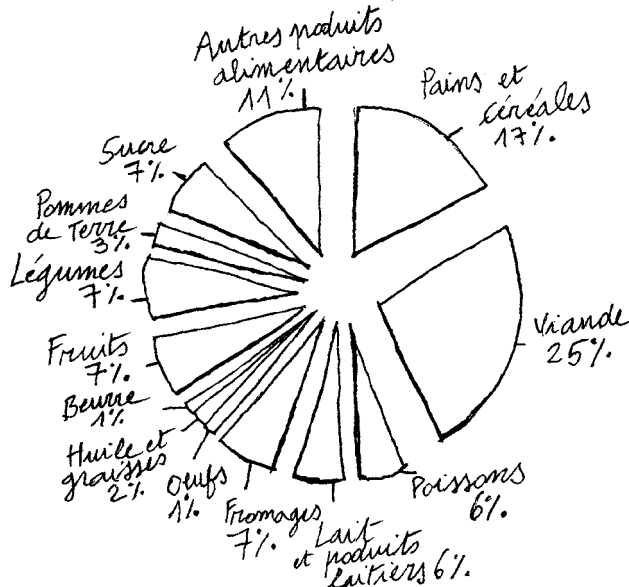 Autres produits
alimentaires
11%
Pains et
céréales
17%
Viande
25%
Poissons
6%
Lait
et produits
laitiers 6%
Fromages
7%
Oeufs
1%
Huile et
graisses
2%
Beurre
1%
Fruits
7%
Légumes
7%
Pommes
de Terre
3%
Sucre
7%